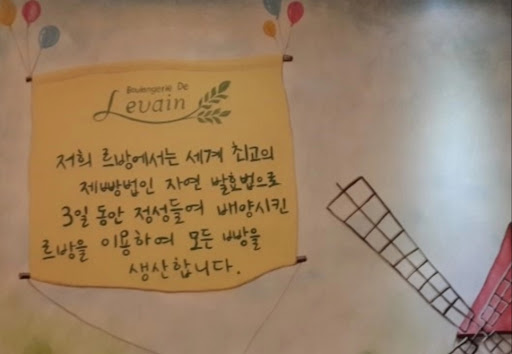 Boulangerie De
Levain
저희 르방에서는 세계 최고의
제빵법인 자연 발효법으로
3일 동안 정성들여 배양시킨
르방을 이용하여 모든 빵을
생산합니다.